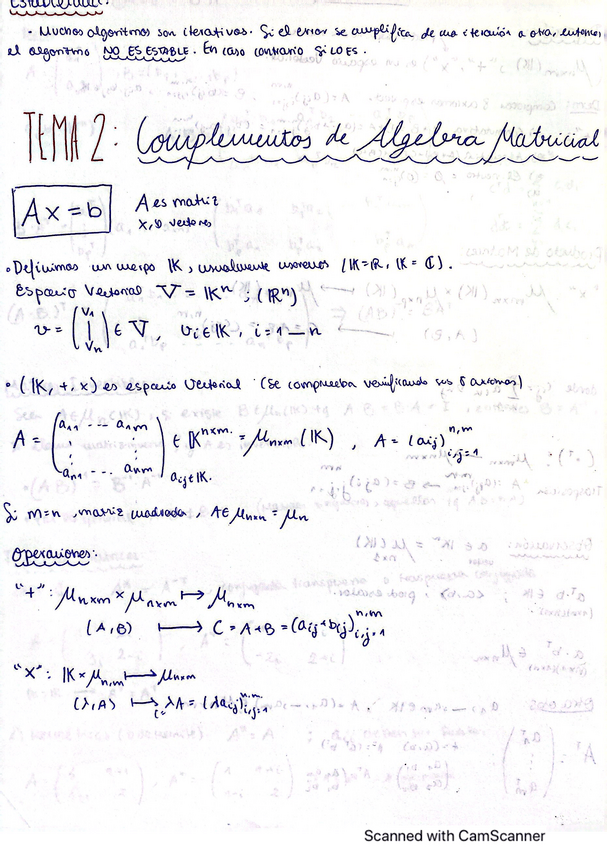 Estabilidad:
· Muchos algoritmos son iterativos. Si el error se amplifica de una iteración a otra, entonces
el algoritmo NO ES ESTABLE. En caso contrario SI LO ES.
TEMA 2: Complementos de Álgebra Matricial
Ax = b
A es matriz
x, b vectores
· Definimos un cuerpo 𝕂, usualmente usaremos (𝕂=ℝ, 𝕂=ℂ).
Espacio Vectorial 𝕍 = 𝕂ⁿ ; (ℝⁿ)
v = (v₁ | vₙ) ∈ 𝕍, vᵢ ∈ 𝕂, i = 1 — n
· (𝕂, +, x) es espacio Vectorial (se comprueba verificando sus 8 axiomas)
A = (a₁₁ --- a₁ₘ ⋮ ⋮ aₙ₁ --- aₙₘ) ∈ 𝕂ⁿˣᵐ = μₙₓₘ(𝕂), A = (aᵢⱼ)ⁿ,ᵐᵢ,ⱼ₌₁
aᵢⱼ ∈ 𝕂.
Si m=n, matriz cuadrada, A ∈ μₙₓₙ = μₙ
Operaciones:
"+": μₙₓₘ × μₙₓₘ ↦ μₙₓₘ
(A, B) ⟼ C = A+B = (aᵢⱼ+bᵢⱼ)ⁿ,ᵐᵢ,ⱼ₌₁
"x": 𝕂 × μₙ,ₘ ⟼ μₙₓₘ
(λ, A) ⟼ λA = (λaᵢⱼ)ⁿ,ᵐᵢ,ⱼ₌₁
Scanned with CamScanner